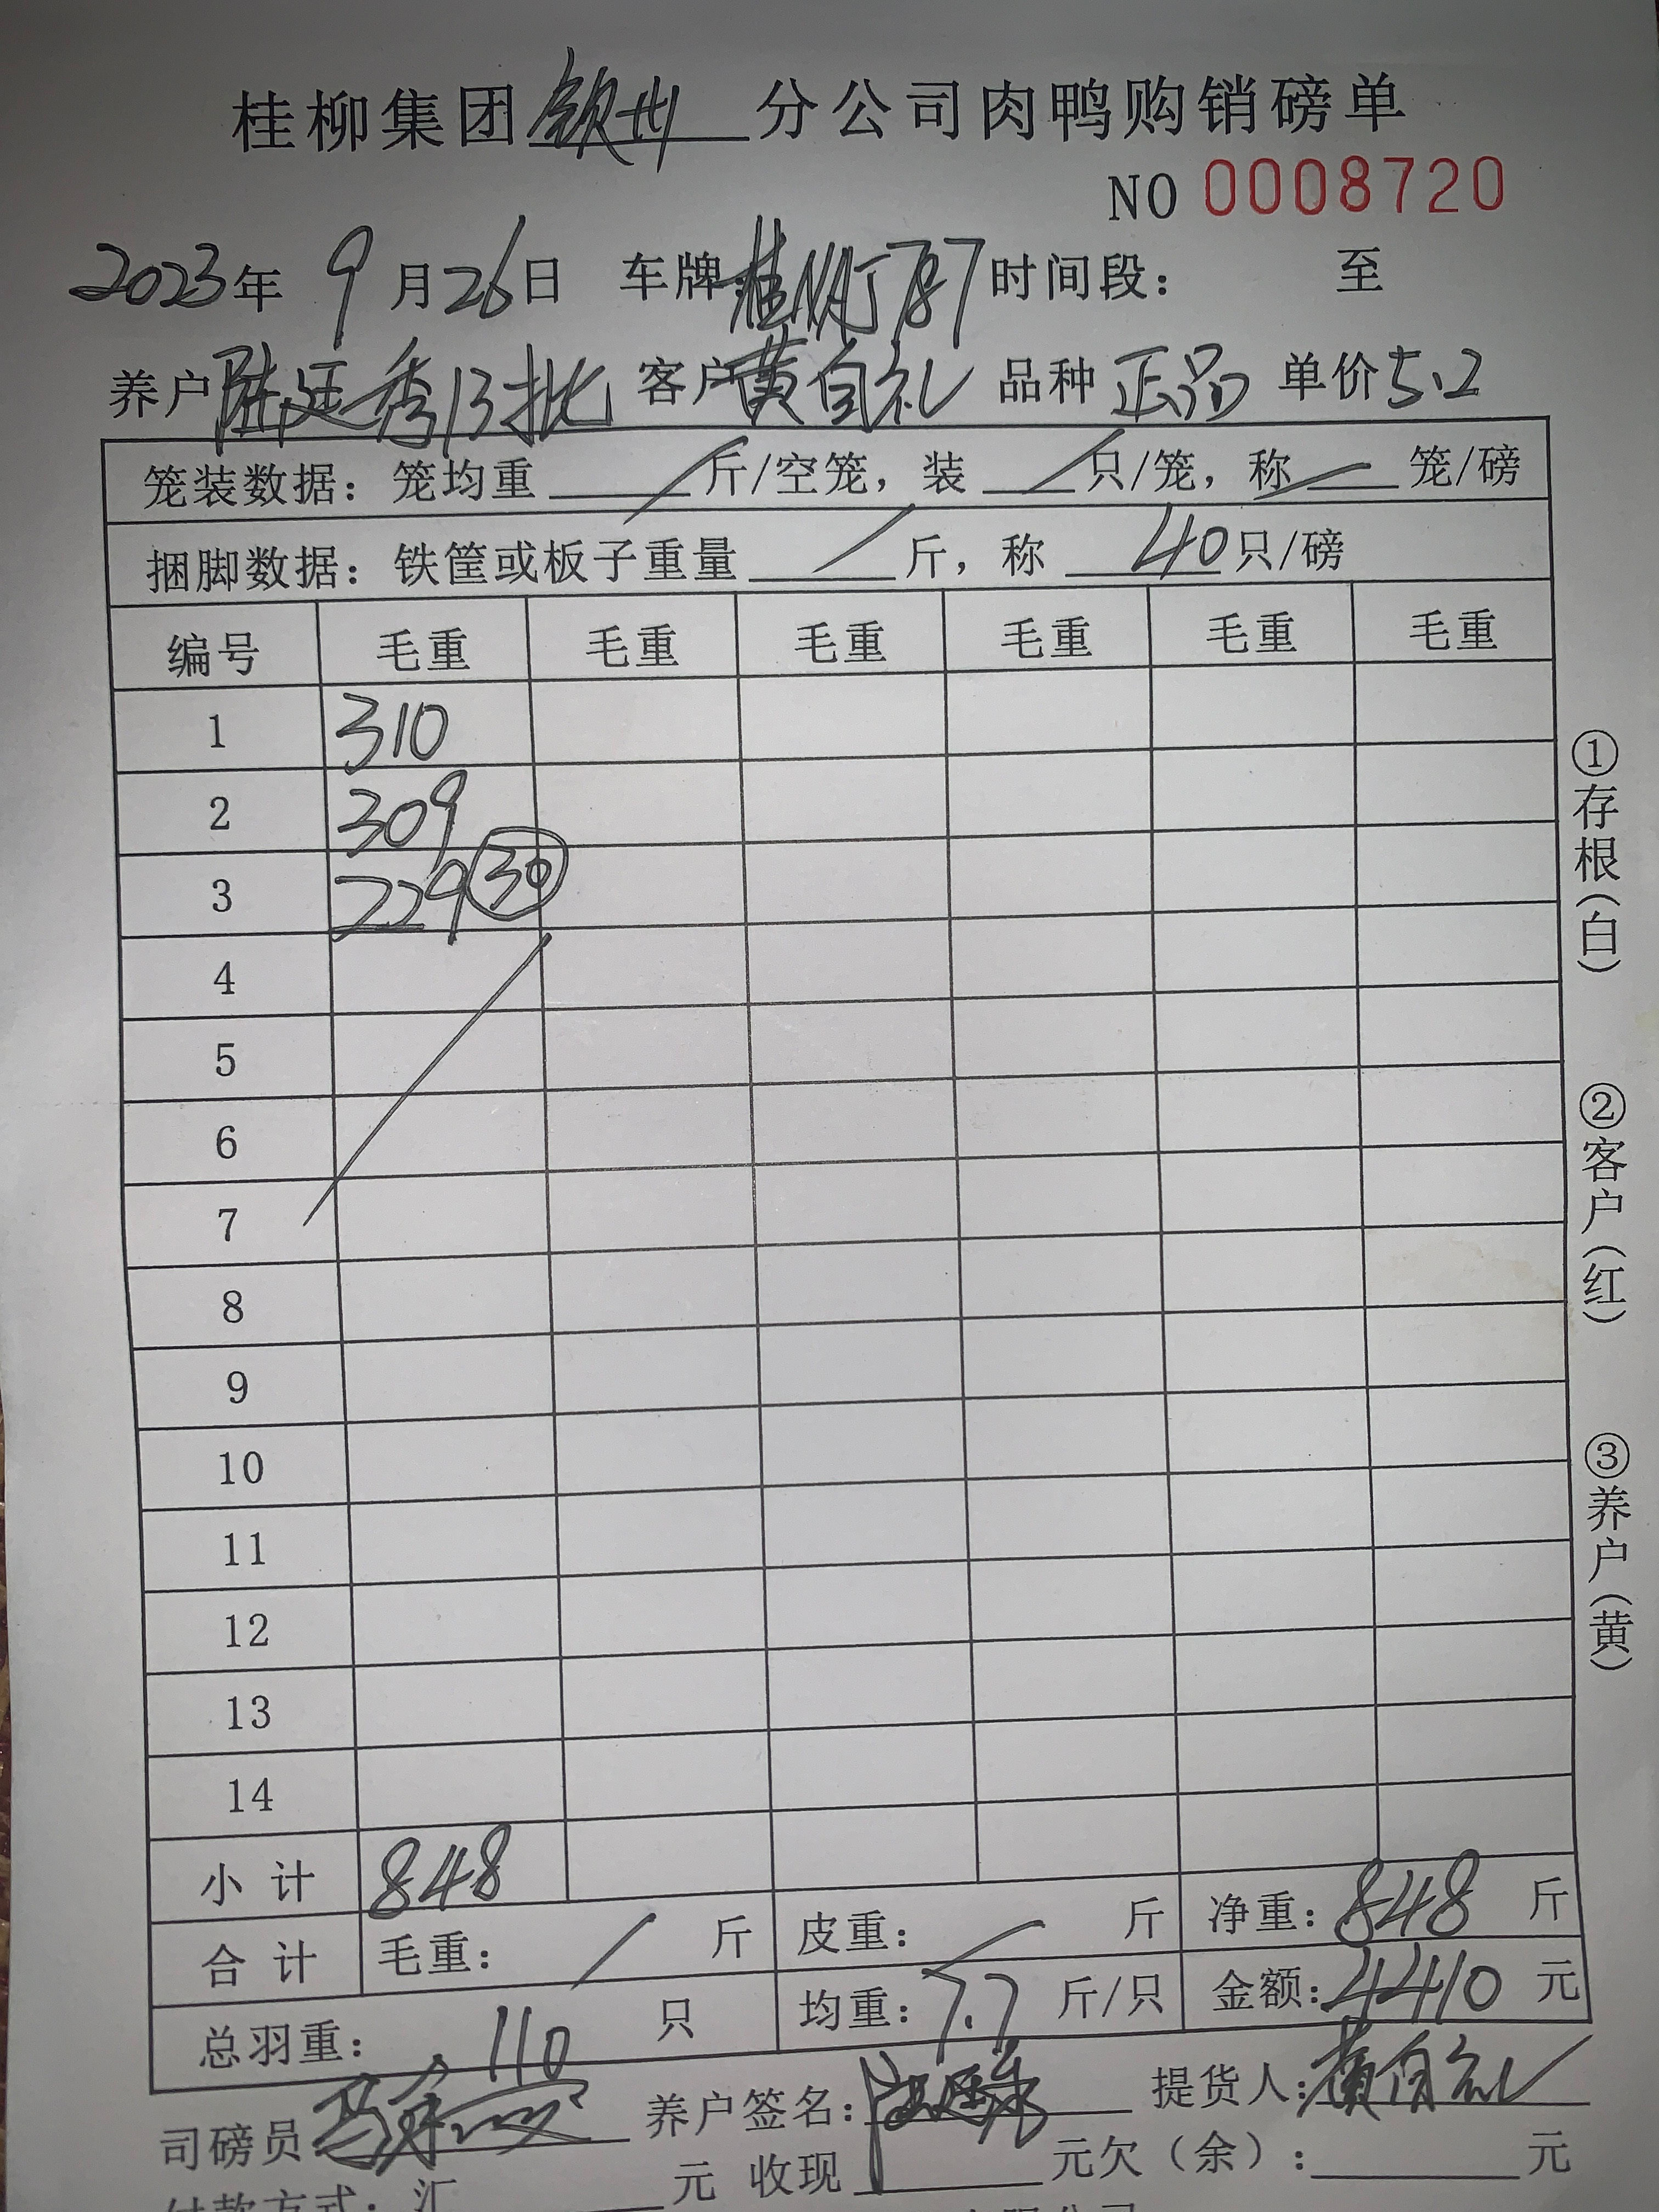 桂柳集团钦州分公司肉鸭购销磅单
NO 0008720
2023年 9月26日 车牌: 桂 787 时间段: 至
养户 陆廷秀13批 客户 黄自礼 品种 正品 单价 5.2
笼装数据: 笼均重 / 斤/空笼, 装 / 只/笼, 称 / 笼/磅
捆脚数据: 铁筐或板子重量 / 斤, 称 40 只/磅
编号 毛重 毛重 毛重 毛重 毛重 毛重
1 310
2 309
3 229 30
4
5
6
7
8
9
10
11
12
13
14
小计 848
合计 毛重: / 斤 皮重: / 斤 净重: 848 斤
总羽重: 110 只 均重: 7.7 斤/只 金额: 4410 元
司磅员 养户签名: 提货人: 黄自礼
付款方式: 汇 元 收现 元欠(余): 元
①存根(白)
②客户(红)
③养户(黄)